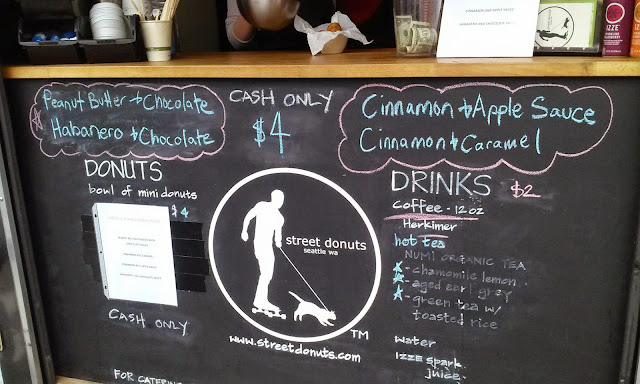 Peanut Butter + Chocolate
Habanero + Chocolate
CASH ONLY
$4
Cinnamon + Apple Sauce
Cinnamon + Caramel
DONUTS
bowl of mini donuts
$4
CASH ONLY
FOR CATERING
street donuts
seattle wa
TM
www.streetdonuts.com
DRINKS $2
Coffee - 12oz
Herkimer
hot tea
NUMI ORGANIC TEA
- chamomile lemon
- aged earl grey
- green tea w/
toasted rice
water
IZZE spark.
juice
IZZE